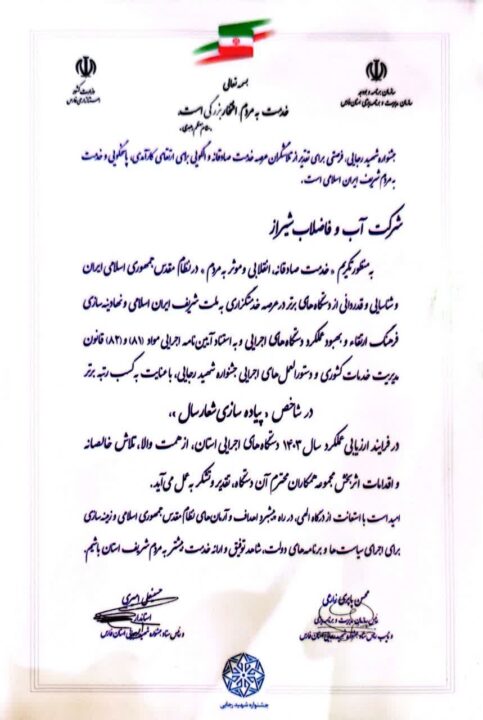 بسمه تعالی
خدمت به مردم افتخار بزرگی است.
وزارت کشور
استانداری فارس
سازمان برنامه و بودجه
سازمان مدیریت و برنامه‌ریزی استان فارس
جشنواره شهید رجایی، فرصتی برای تقدیر از تلاشگران عرصه خدمت صادقانه و الگویی برای ارتقای کارآمدی، پاسخگویی و خدمت
به مردم شریف ایران اسلامی است.
شرکت آب و فاضلاب شیراز
به منظور تکریم « خدمت صادقانه، انقلابی و موثر به مردم » در نظام مقدس جمهوری اسلامی ایران
و شناسایی و قدردانی از دستگاه‌های برتر در عرصه خدمتگزاری به ملت شریف ایران اسلامی و نهادینه سازی
فرهنگ ارتقاء و بهبود عملکرد دستگاه‌های اجرایی و به استناد آیین نامه اجرایی مواد (۸۱) و (۸۲) قانون
مدیریت خدمات کشوری و دستورالعمل‌های اجرایی جشنواره شهید رجایی، با عنایت به کسب رتبه برتر
در شاخص « پیاده سازی شعار سال »،
در فرایند ارزیابی عملکرد سال ۱۴۰۳ دستگاه‌های اجرایی استان، از همت والا، تلاش خالصانه
و اقدامات اثربخش مجموعه همکاران محترم آن دستگاه، تقدیر و تشکر به عمل می‌آید.
امید است با استعانت از درگاه الهی، در راه پیشبرد اهداف و آرمان‌های نظام مقدس جمهوری اسلامی و زمینه سازی
برای اجرای سیاست‌ها و برنامه‌های دولت، شاهد توفیق و ارائه خدمت بیشتر به مردم شریف استان باشیم.
حسینعلی امیری
استاندار
و رئیس ستاد جشنواره شهید رجایی استان فارس
رئیس سازمان مدیریت و برنامه‌ریزی
و نایب رئیس ستاد جشنواره شهید رجایی استان فارس
جشنواره شهید رجایی